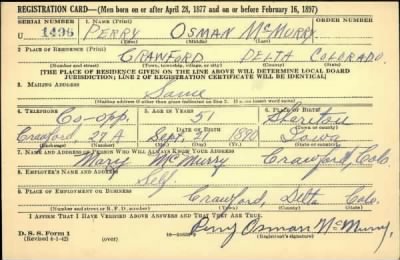 REGISTRATION CARD—(Men born on or after April 28, 1877 and on or before February 16, 1897)
SERIAL NUMBER 1. NAME (Print) ORDER NUMBER
U 1496 PERRY OSMAN McMURRY
(First) (Middle) (Last)
2. PLACE OF RESIDENCE (Print)
CRAWFORD DELTA COLORADO
(Number and street) (Town, township, village, or city) (County) (State)
[THE PLACE OF RESIDENCE GIVEN ON THE LINE ABOVE WILL DETERMINE LOCAL BOARD
JURISDICTION; LINE 2 OF REGISTRATION CERTIFICATE WILL BE IDENTICAL]
3. MAILING ADDRESS
Same
(Mailing address if other than place indicated on line 2. If same insert word same)
4. TELEPHONE 5. AGE IN YEARS 6. PLACE OF BIRTH
Co-opp. 51 Shariton
DATE OF BIRTH (Town or county)
Crawford, 27A Sept. 21 1890 Iowa
(Exchange) (Number) (Mo.) (Day) (Yr.) (State or country)
7. NAME AND ADDRESS OF PERSON WHO WILL ALWAYS KNOW YOUR ADDRESS
Mary McMurry Crawford, Colo.
8. EMPLOYER'S NAME AND ADDRESS
Self
9. PLACE OF EMPLOYMENT OR BUSINESS
Crawford, Delta Colo.
(Number and street or R. F. D. number) (Town) (County) (State)
I AFFIRM THAT I HAVE VERIFIED ABOVE ANSWERS AND THAT THEY ARE TRUE.
D. S. S. Form 1
(Revised 4-1-42) (over) Perry Osman McMurry
(Registrant's signature)